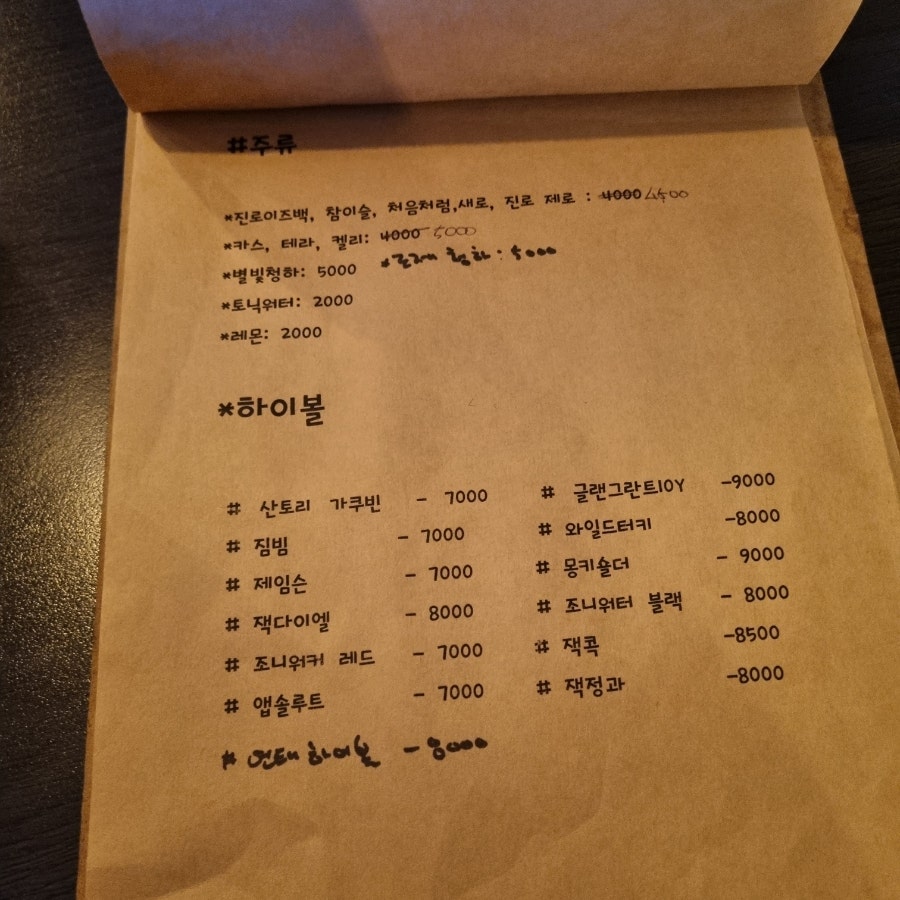 #주류
*진로이즈백, 참이슬, 처음처럼,새로, 진로 제로 : 4000 4500
*카스, 테라, 켈리: 4000 5000
*별빛청하: 5000 *로제 청하 : 5000
*토닉워터: 2000
*레몬: 2000
*하이볼
# 산토리 가쿠빈 - 7000 # 글랜그란트10Y -9000
# 짐빔 - 7000 # 와일드터키 -8000
# 제임슨 - 7000 # 몽키숄더 - 9000
# 잭다이엘 - 8000 # 조니워터 블랙 - 8000
# 조니워커 레드 - 7000 # 잭콕 -8500
# 앱솔루트 - 7000 # 잭정과 -8000
# 연태하이볼 - 8000